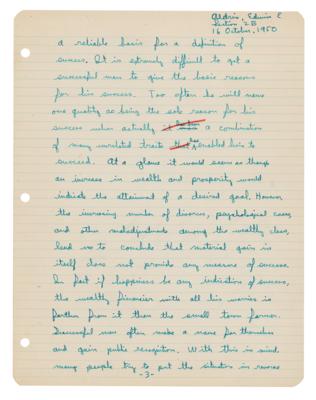 Aldrin, Edwin E.
Section 2B
16 October, 1950
a reliable basis for a definition of
success. It is extremely difficult to get a
successful man to give the basic reasons
for his success. Too often he will name
one quality as being the sole reason for his
success when actually it has been a combination
of many unrelated traits that has enabled him to
succeed. At a glance it would seem as though
an increase in wealth and prosperity would
indicate the attainment of a desired goal. However
the increasing number of divorces, psychological cases,
and other maladjustments among the wealthy class,
lead me to conclude that material gain in
itself does not provide any measure of success.
In fact if happiness be any indication of success,
the wealthy financier with all his worries is
further from it than the small town farmer.
Successful men often make a name for themselves
and gain public recognition. With this in mind
many people try to put the situation in reverse
-3-